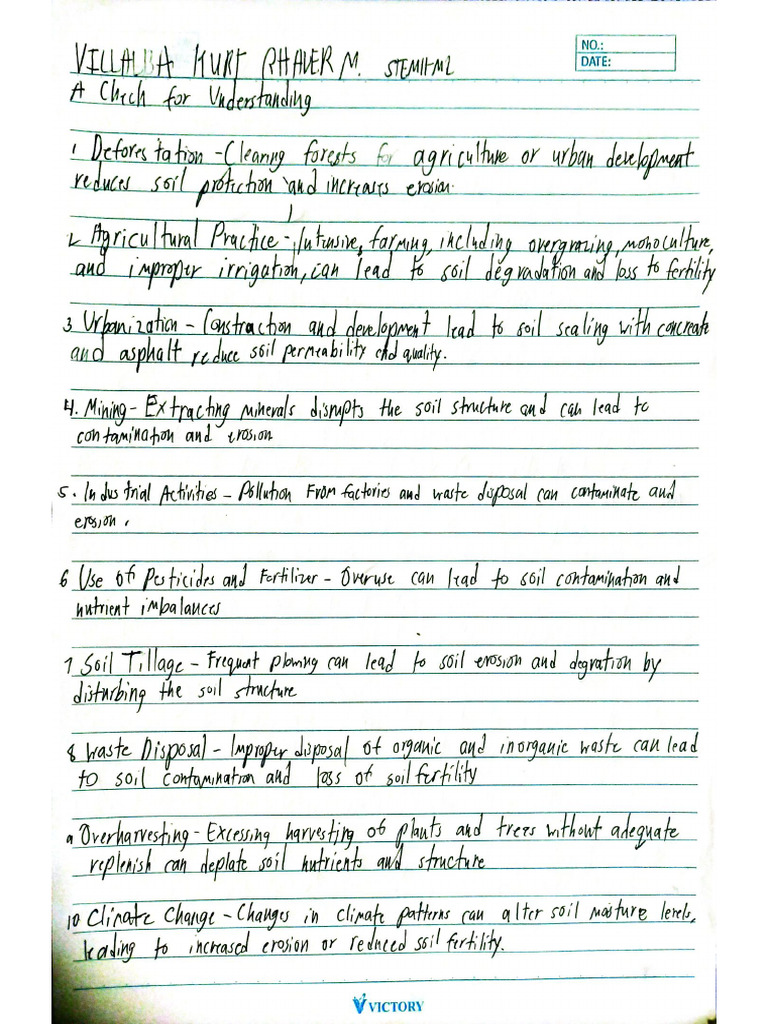 VILLALBA KURT RHAVER M. STEM11-M2
NO.:
DATE:
A Chech for Understanding
1 Deforestation - Clearing forests for agriculture or urban development
reduces soil protection and increases erosion.
2 Agricultural Practice - Intensive, farming, including overgrazing, monoculture,
and improper irrigation, can lead to soil degradation and loss to fertility
3 Urbanization - Constraction and development lead to soil scaling with concreate
and asphalt reduce soil permeability and quality.
4. Mining - Extracting minerals disrupts the soil structure and can lead to
contamination and erosion
5. Industrial Activities - Pollution From factories and waste disposal can contaminate and
erosion.
6 Use of Pesticides and Fertilizer - Overuse can lead to soil contamination and
nutrient imbalances
7 Soil Tillage - Frequent plowing can lead to soil erosion and degration by
disturbing the soil structure
8 Waste Disposal - Improper disposal of organic and inorganic waste can lead
to soil contamination and loss of soil fertility
9 Overharvesting - Excessing harvesting of plants and trees without adequate
replenish can deplate soil nutrients and structure
10 Climate Change - Changes in climate patterns can alter soil moisture levels,
leading to increased erosion or reduced soil fertility.
VICTORY